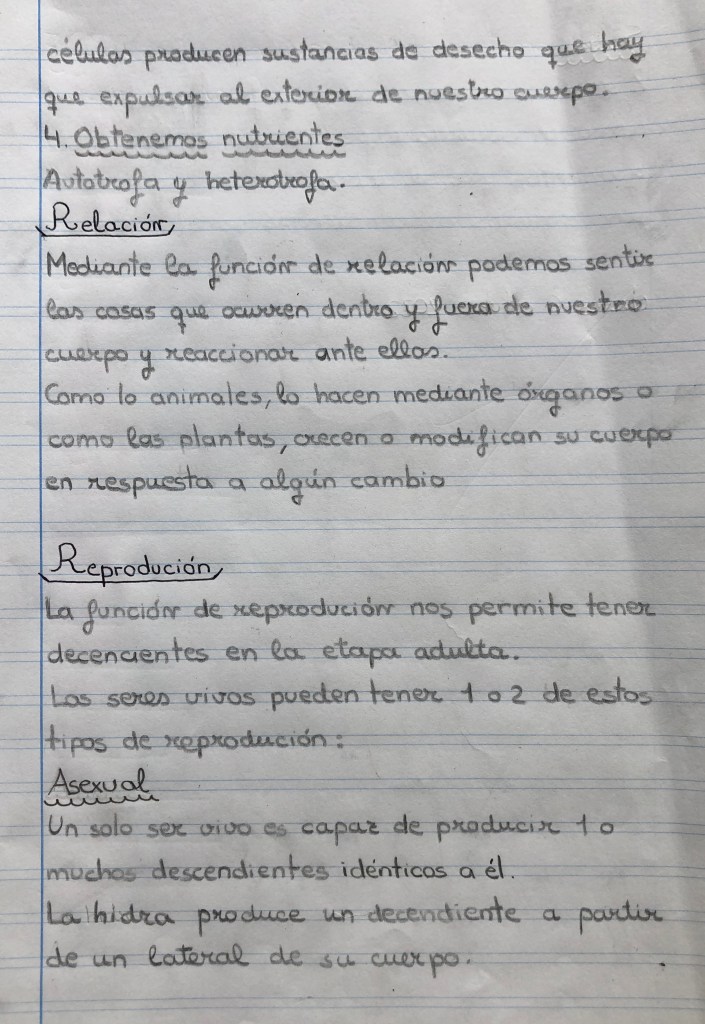 células producen sustancias de desecho que hay
que expulsar al exterior de nuestro cuerpo.
4. Obtenemos nutrientes
Autotrofa y heterotrofa.
Relación
Mediante la función de relación podemos sentir
las cosas que ocurren dentro y fuera de nuestro
cuerpo y reaccionar ante ellas.
Como lo animales, lo hacen mediante órganos o
como las plantas, crecen o modifican su cuerpo
en respuesta a algún cambio
Reprodución
La función de reprodución nos permite tener
decencientes en la etapa adulta.
Los seres vivos pueden tener 1 o 2 de estos
tipos de reprodución:
Asexual
Un solo ser vivo es capaz de producir 1 o
muchos descendientes idénticos a él.
La hidra produce un decendiente a partir
de un lateral de su cuerpo.